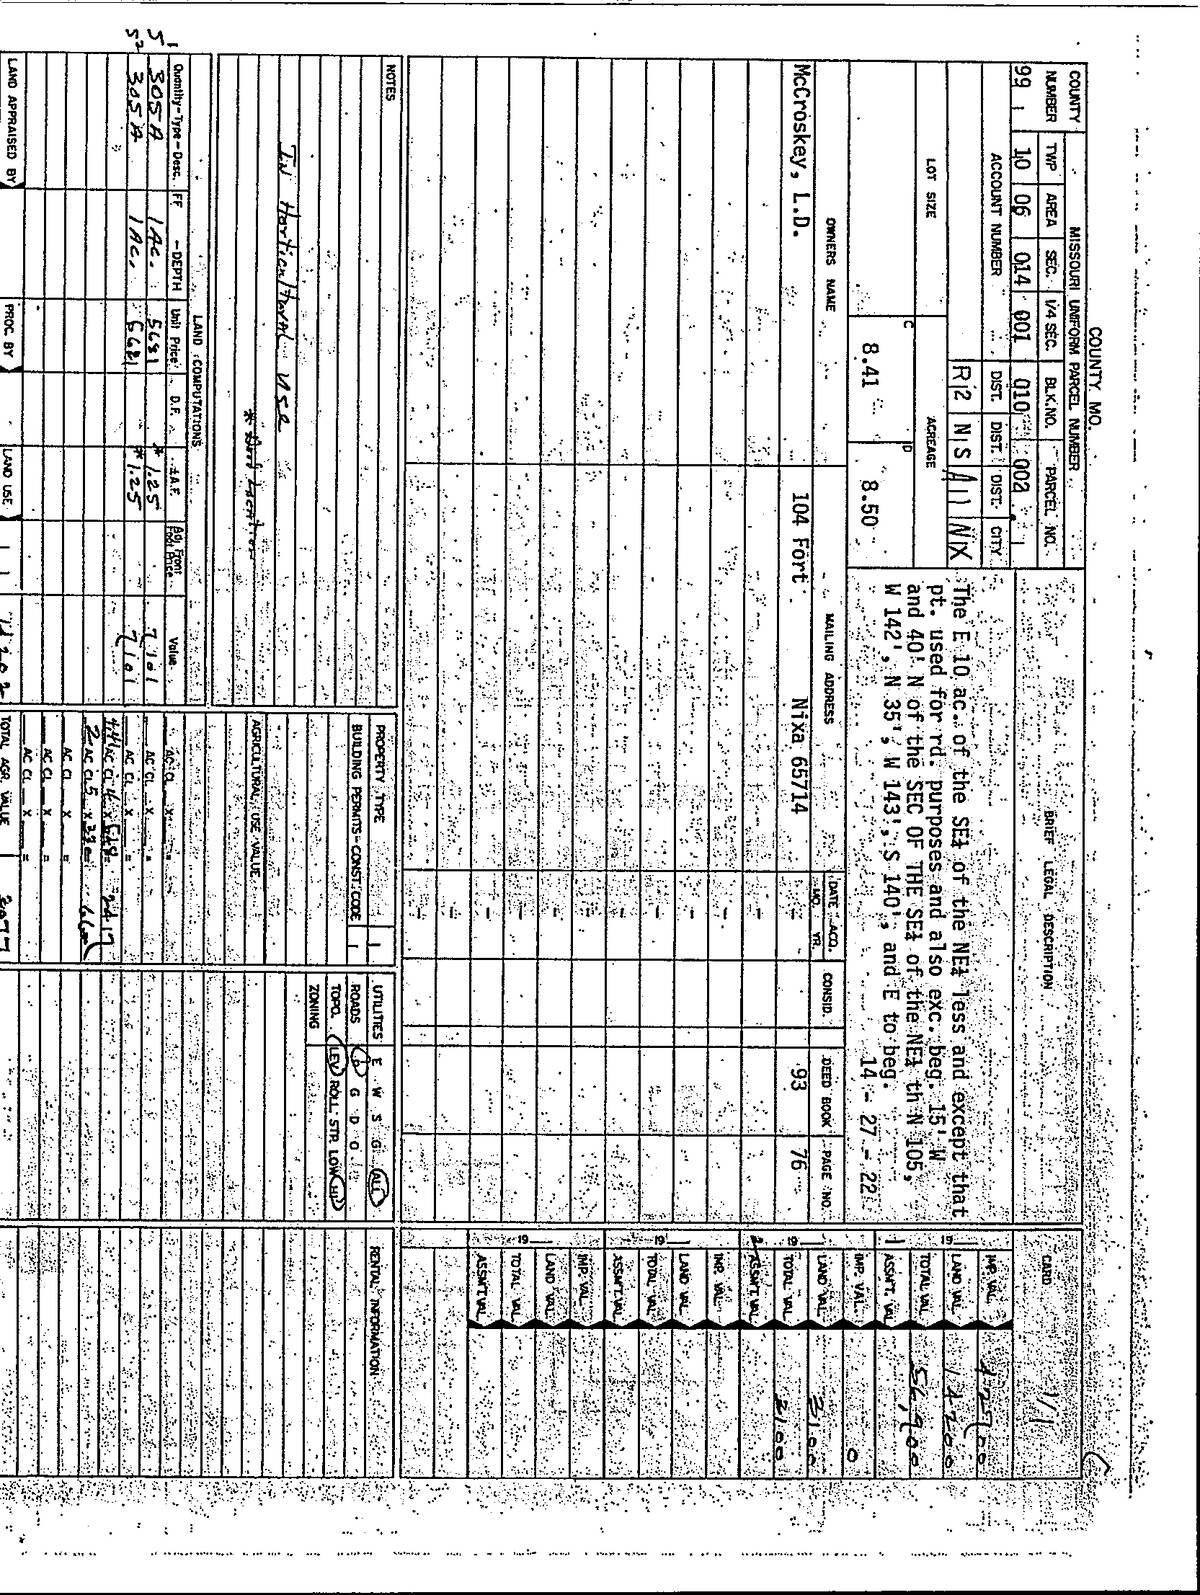 COUNTY, MO.
COUNTY NUMBER
MISSOURI UNIFORM PARCEL NUMBER
TWP AREA SEC. 1/4 SEC. BLK.NO. PARCEL NO.
99 10 06 014 001 010 002
ACCOUNT NUMBER DIST. DIST. DIST. CITY
R12 NS A11 NIX
LOT SIZE ACREAGE
C 8.41 D 8.50
BRIEF LEGAL DESCRIPTION
The E 10 ac. of the SE¼ of the NE¼ less and except that
pt. used for rd. purposes and also exc. beg. 15' W
and 40' N of the SEC OF THE SE¼ of the NE¼ th N 105,
W 142', N 35', W 143', S 140', and E to beg.
14 - 27 - 22
CARD 1/1
OWNERS NAME MAILING ADDRESS DATE ACQ. MO. YR. CONSID. DEED BOOK PAGE NO.
McCroskey, L.D. 104 Fort Nixa 65714 93 76
1 19
IMP. VAL. 42700
LAND VAL. 14200
TOTAL VAL. 56,900
ASSM'T. VAL.
2 19
IMP. VAL. 0
LAND VAL. 2100
TOTAL VAL. 2100
ASSM'T. VAL.
19
IMP. VAL.
LAND VAL.
TOTAL VAL.
ASSM'T. VAL.
19
IMP. VAL.
LAND VAL.
TOTAL VAL.
ASSM'T. VAL.
NOTES
In Horticultural use
PROPERTY TYPE 1
BUILDING PERMITS-CONST. CODE 1
UTILITIES E W S G ALL
ROADS P G D O
TOPO. LEV ROLL STP. LOW HI
ZONING
RENTAL INFORMATION
AGRICULTURAL USE VALUE
LAND COMPUTATIONS
Quantity-Type-Desc. FF -DEPTH Unit Price D.F. I.A.F. Adj. Front Foot Price Value
51 305A 1 Ac. 5681 *1.25 7,101
52 305A 1 Ac. 5681 *1.25 7,101
AC CL X =
AC CL X =
AC CL X =
2 AC CL 5 X 330= 660
AC CL X =
AC CL X =
AC CL X =
LAND APPRAISED BY PROC. BY LAND USE TOTAL AGR. VALUE